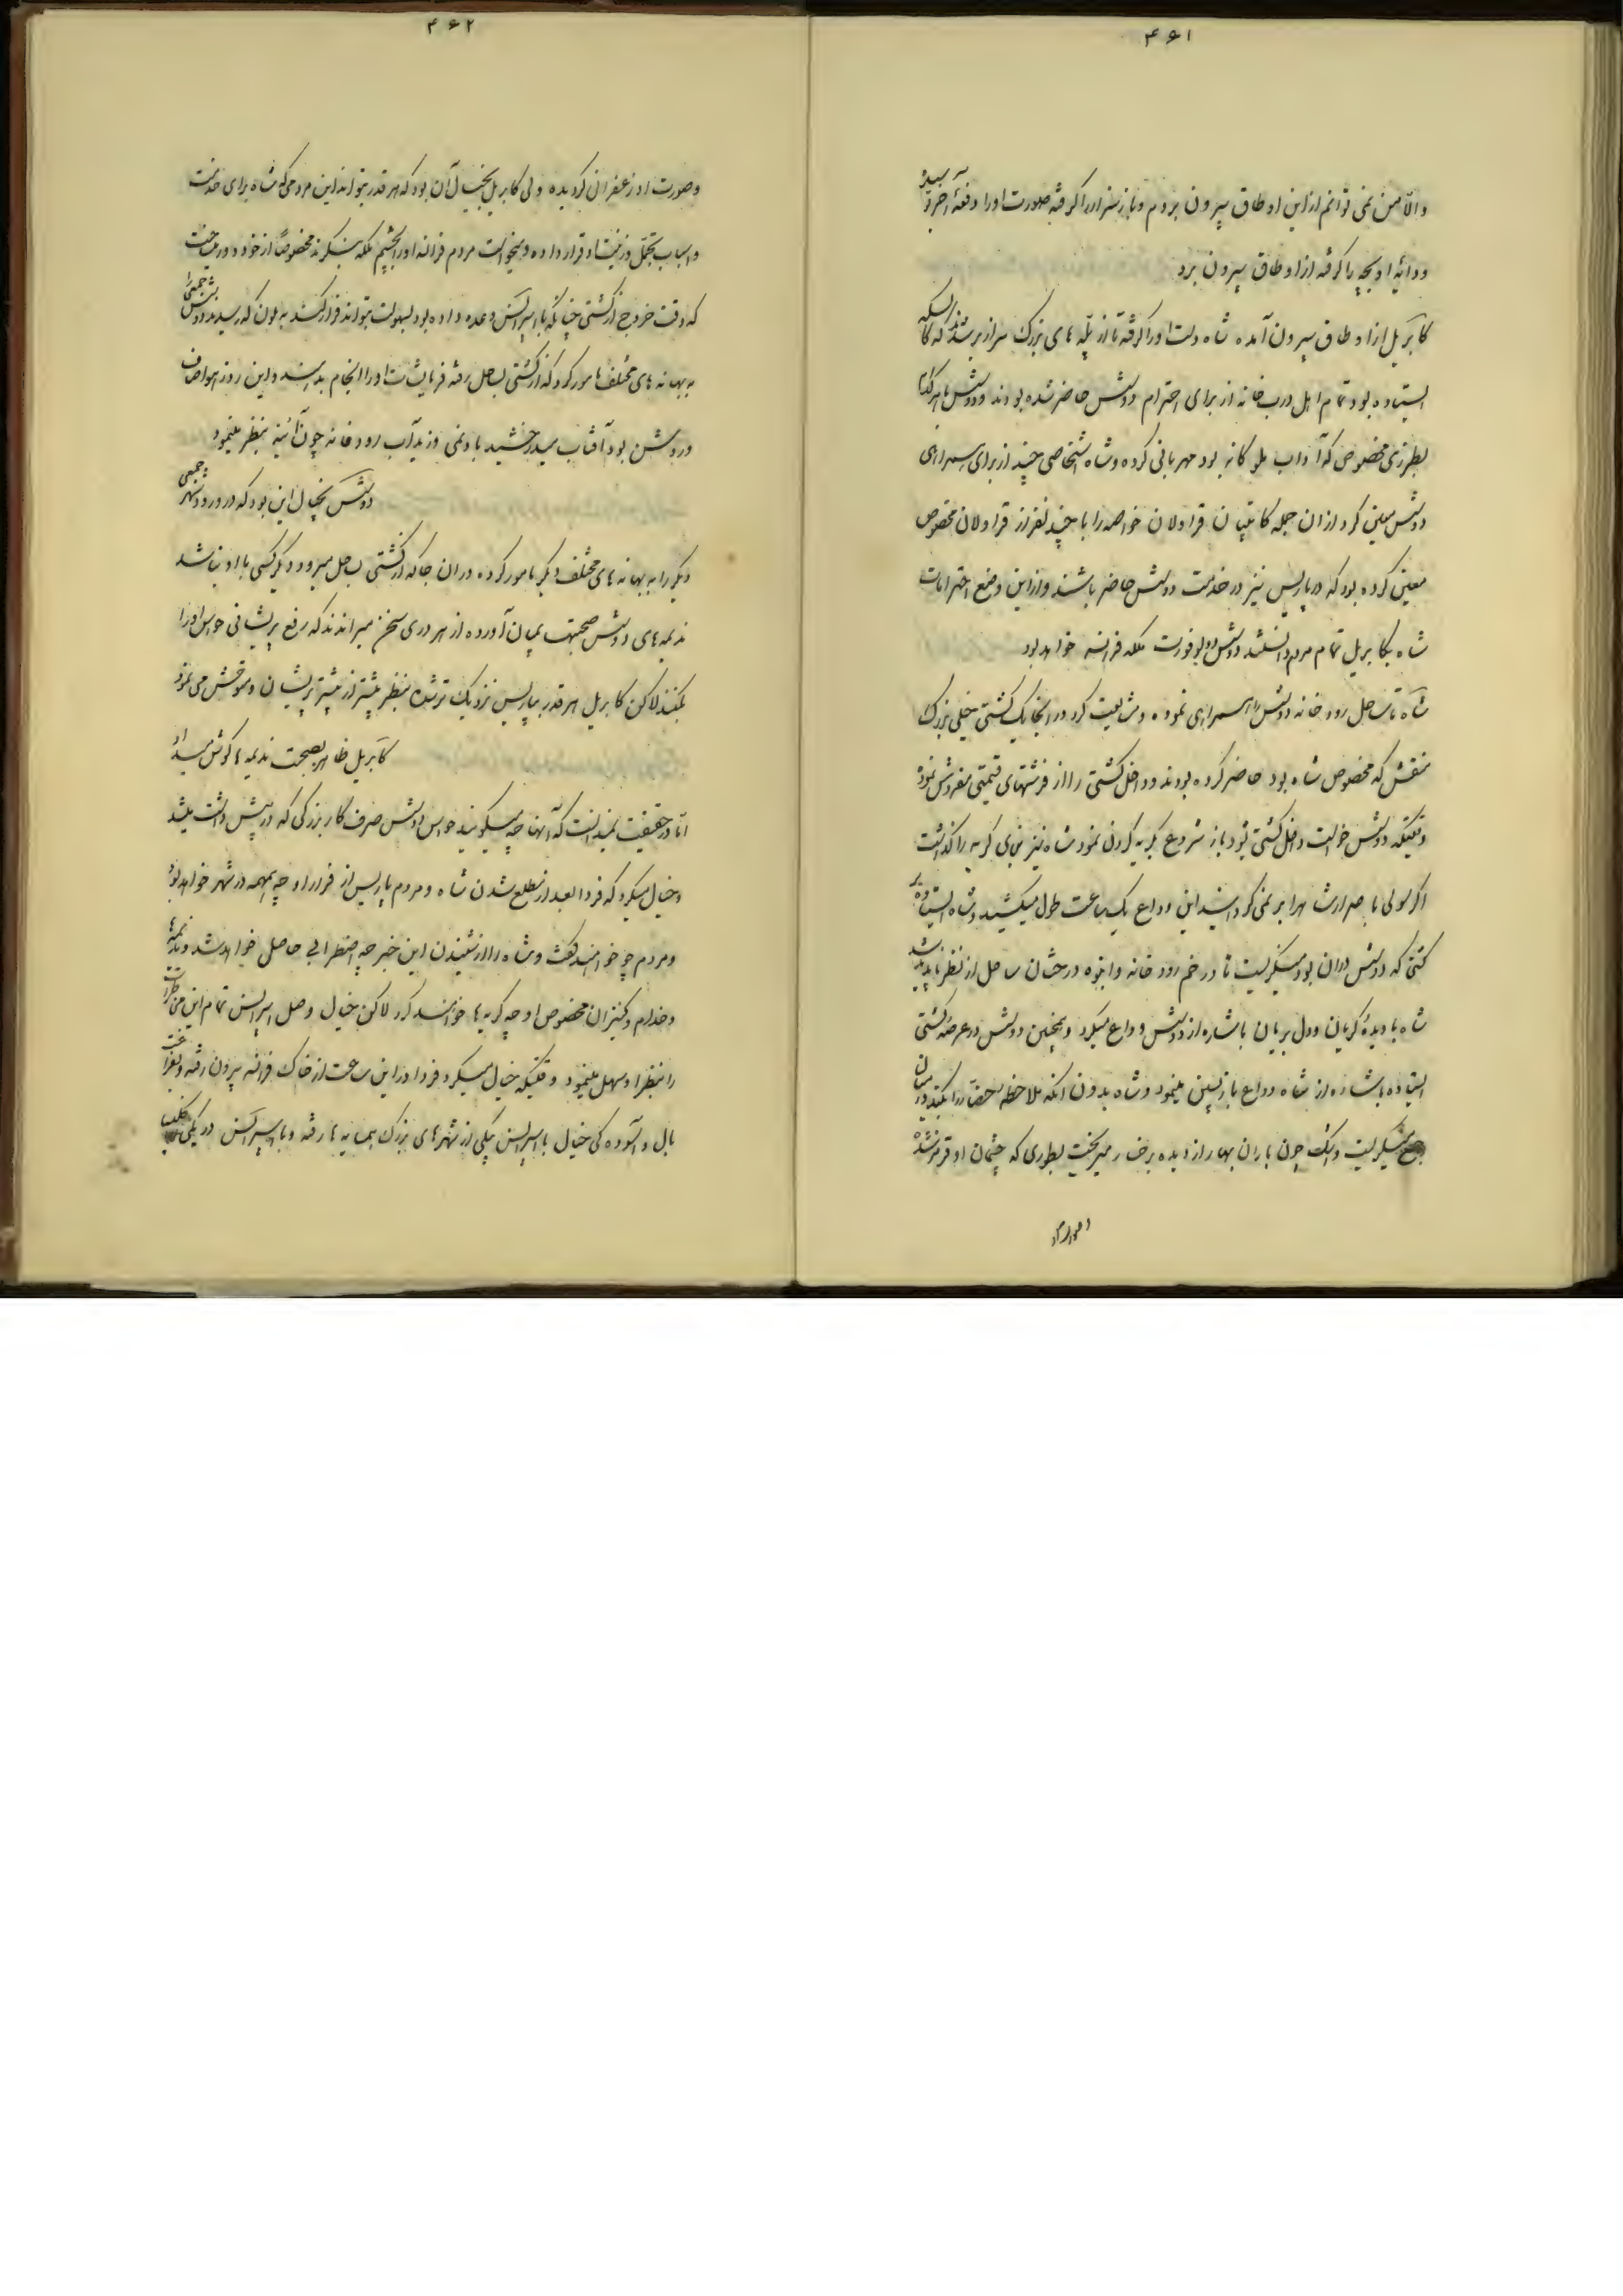 ۴۶۱
والّا من نمی توانم ازاین اوطاق بیرون بروم و باز سزار را گرفته صورت اورا دفعهٔ آخر بوسیده
ودایهٔ او بچه را گرفته ازاوطاق بیرون برد
کابریل ازاوطاق بیرون آمده شاه دست اورا گرفته تا از پله های بزرگ سرازیر شدند
ایستاده بود تمام اهل درب خانه از برای احترام دوشس حاضر شده بودند ودوشس باهر کدام
بطرزی مخصوص که آداب ملوکانه بود مهربانی کرده وشاه اشخاصی چند از برای همراهی
دوشس معین کرد ازان جمله کاپیتان قراولان خواصه را با چند نفر از قراولان مخصوص
معین کرده بود که درپاریس نیز درخدمت دوشس حاضر باشند وازاین وضع احترامات
شاه بکابریل تمام مردم دانستند دوشس دوبوفورت ملکه فرانسه خواهد بود
شاه تا ساحل رودخانه دوشس را همراهی نموده ومشایعت کرد درانجا یک کشتی خیلی بزرگ
منقش که مخصوص شاه بود حاضر کرده بودند وداخل کشتی را از فرشهای قیمتی مفروش نموده
وقتیکه دوشس خواست داخل کشتی شود باز شروع بگریه کردن نمود شاه نیز بنای گریه را گذاشت
اگر سولی باصرار شاه را بر نمی گرداند این وداع یک ساعت طول میکشید وشاه ایستاده به
کشتی که دوشس دران بود مینگریست تا درخم رودخانه وانبوه درختان ساحل از نظر ناپدید شد
شاه با دیدهٔ گریان ودل بریان باشاره از دوشس وداع میکرد وهمچنین دوشس درعرشه کشتی
ایستاده باشاره از شاه وداع بازپسین مینمود وشاه بدون انکه ملاحظه حضار را بکند درمیان
جمع میگریست واشک چون باران بهار از دیده برخسار میریخت بطوری که چشمان او قرمز شده
۴۶۲
وصورت او زعفران گردیده ولی کابریل بخیال آن بود که هر قدر بتواند این مردمی که شاه برای خدمت
واسباب تجمل وزینت او قرار داده ومیخواست مردم فرانسه اورا بچشم ملکه بنگرند مخصوصاً ازخود دور میساخت
که وقت خروج از کشتی چنانکه با اسپرانس وعده داده بود بسهولت بتواند فرار کند به ملون که رسیدند دوشس جمعی را
به بهانه های مختلف مامور کرد که از کشتی بساحل رفته فرمایشات اورا انجام بدهند واین روز هوا صاف
وروشن بود آفتاب میدرخشید باد نمی وزید آب رودخانه چون آئینه بنظر مینمود
دوشس بخیال این بود که در ورود شهر جمعی
دیگر را به بهانه های مختلف دیگر مامور کرده دران جا که از کشتی بساحل میرود دیگر کسی با او نباشد
ندیمه های دوشس صحبتها بمیان آورده از هر دری سخن میراندند که رفع پریشانی حواس اورا
بکنند لاکن کابریل هر قدر بپاریس نزدیک تر شده بنظر بیشتر از پیشتر پریشان ومتوحش می نمود
کابریل ظاهراً بصحبت ندیمه ها گوش میداد
امّا درحقیقت نمیدانست که آنها چه میگویند حواس دوشس صرف کار بزرگی که درپیش داشت میشد
وخیال میکرد که فردا بعد از مطلع شدن شاه ومردم پاریس از فرار او چه همهمه در شهر خواهد بود
ومردم چه خواهند گفت وشاه را از شنیدن این خبر چه اضطرابی حاصل خواهد شد وندیمه ها
وخدام وکنیزان مخصوص او چه گریه ها خواهند کرد لاکن خیال وصل اسپرانس تمام این مخاطرات
را بنظر او سهل مینمود وقتیکه خیال میکرد فردا دراین ساعت از خاک فرانسه بیرون رفته وبفراغت
بال وآسوده کی خیال با اسپرانس بیکی از شهرهای بزرگ همسایه ها رفته وبا اسپرانس در یکی